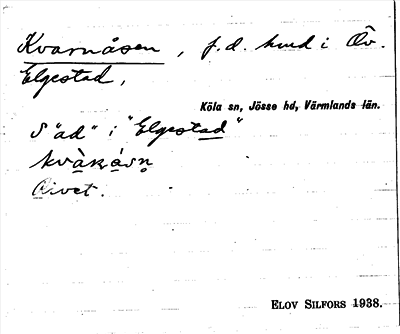 Kvarnåsen, f.d. hmd i Öv.
Elgestad,
Köla sn, Jösse hd, Värmlands län.
S "äd" i "Elgestad"
Livet.
ELOV SILFORS 1938.